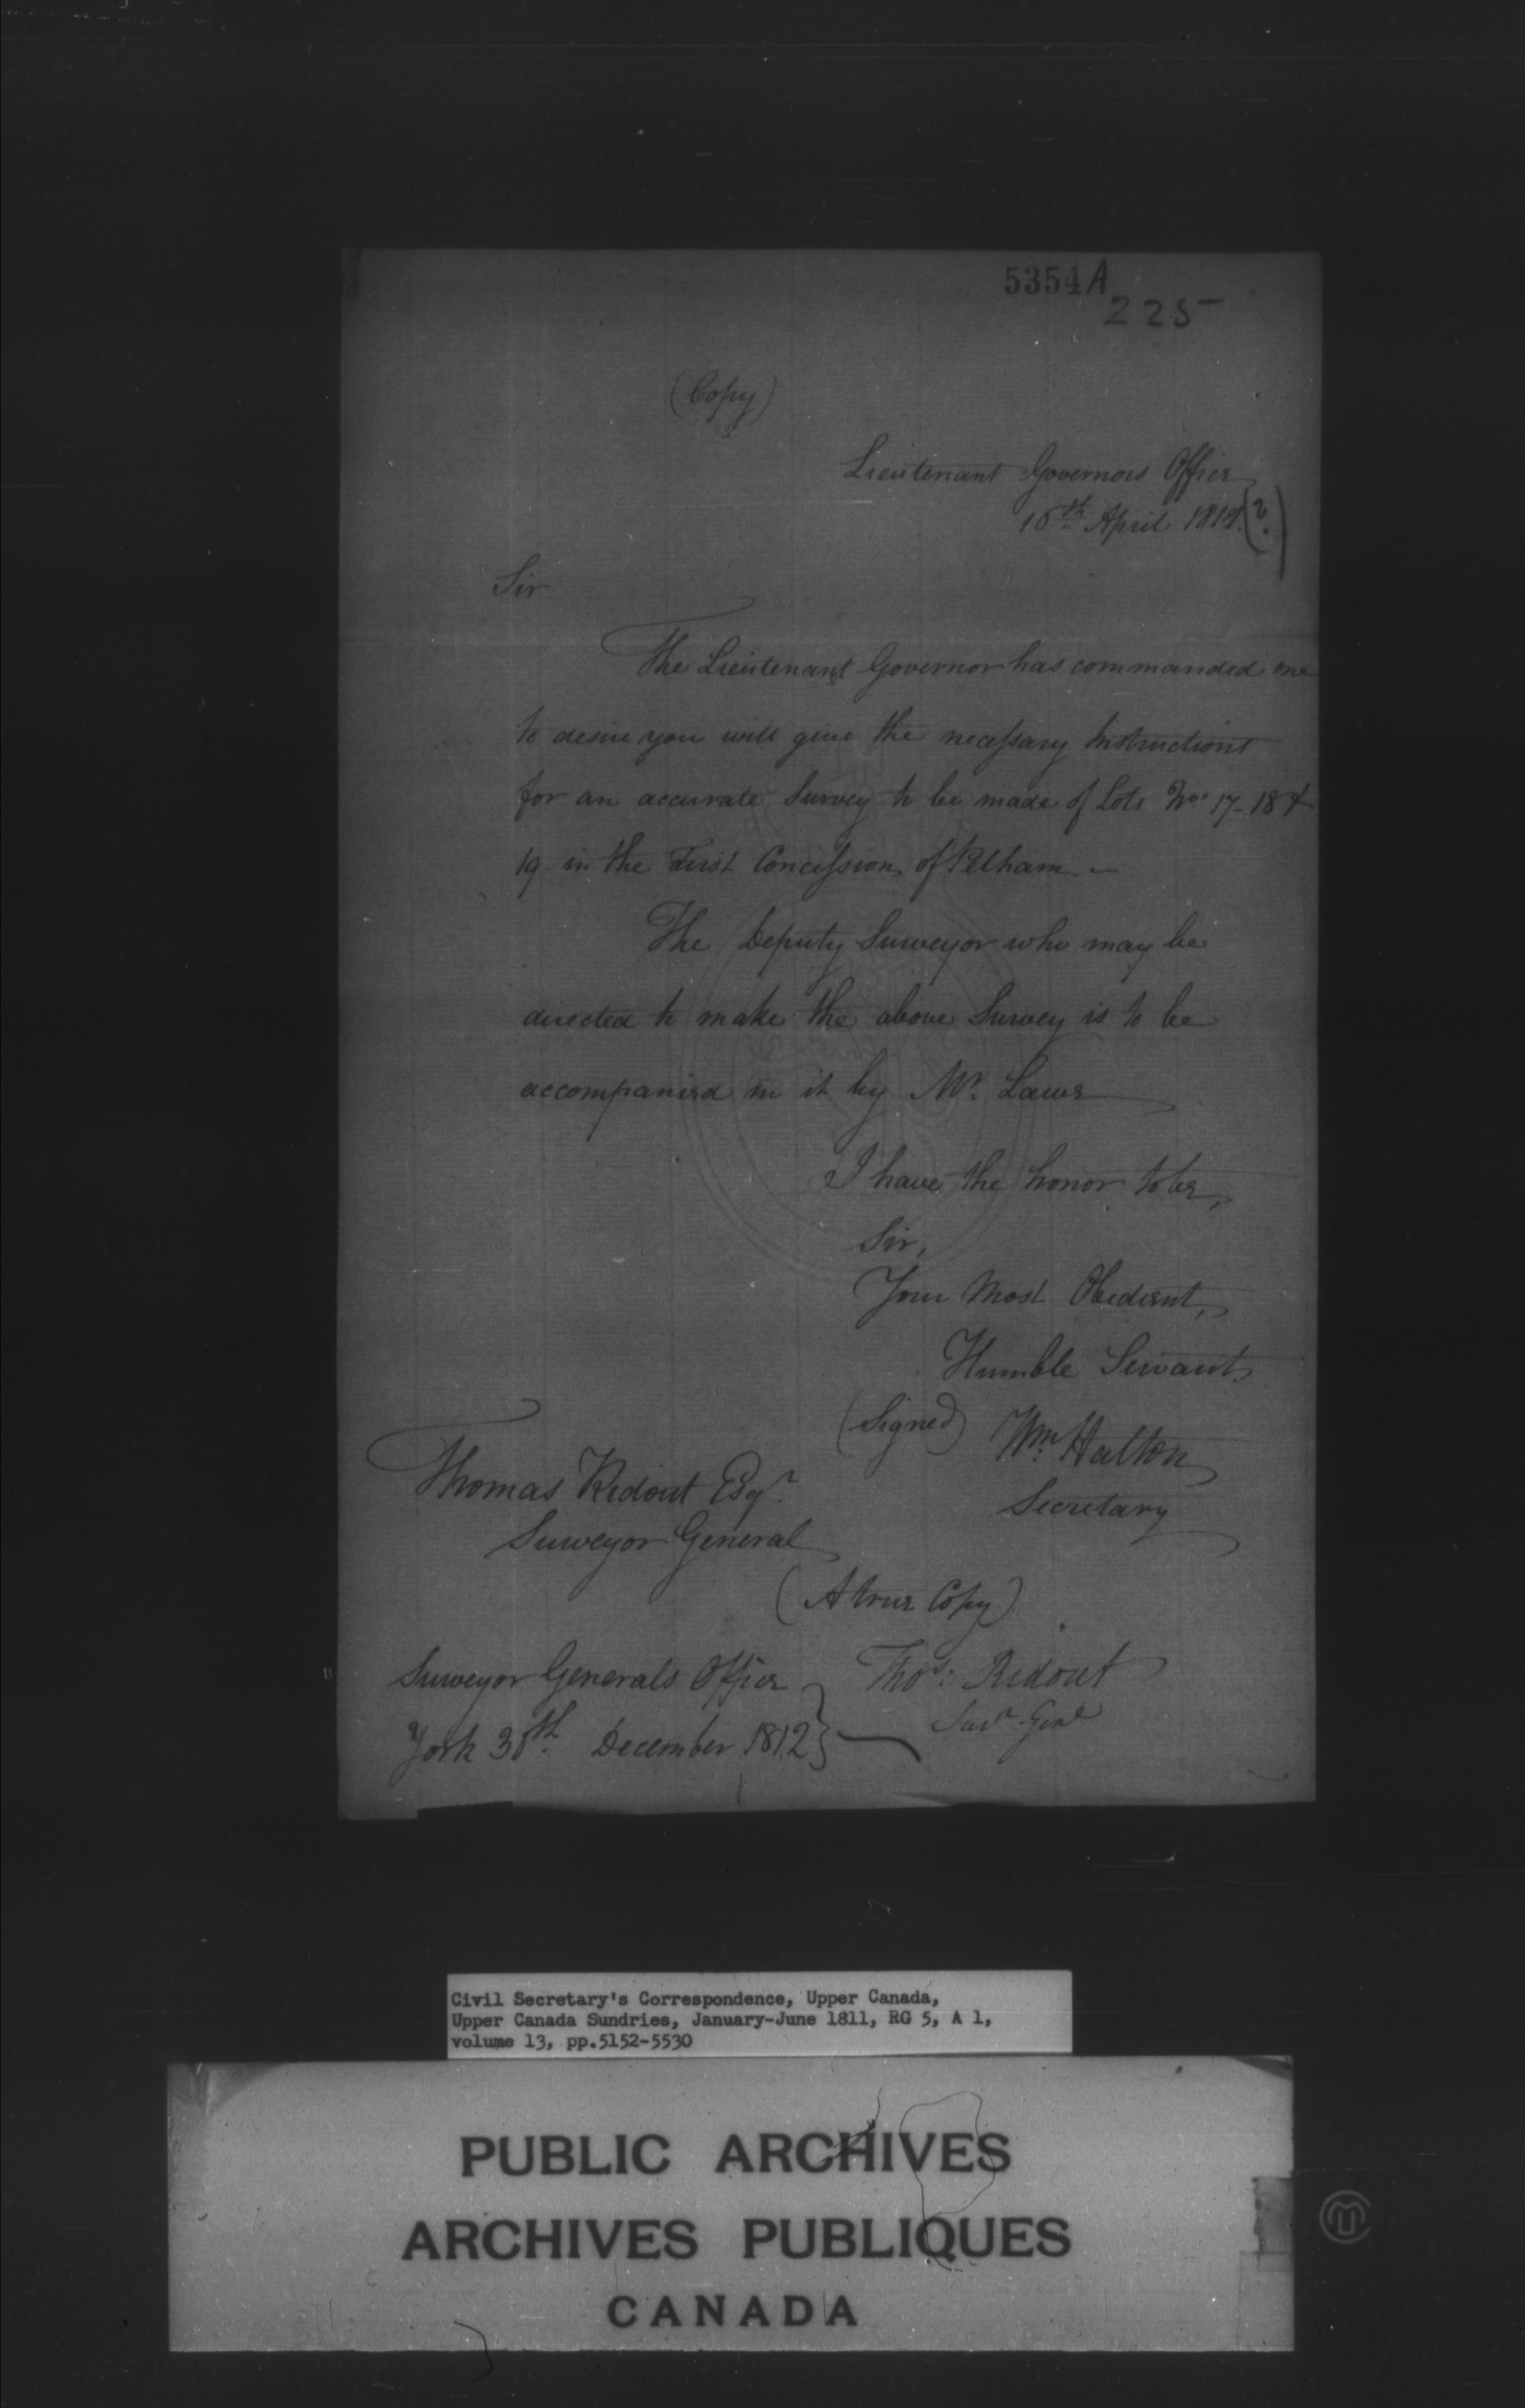 5354A
225
(Copy)
Lieutenant Governors Office
16th April 181
(?)
Sir
The Lieutenant Governor has commanded me
to desire you will give the necessary Instructions
for an accurate Survey to be made of Lots Nos 17-18 &
19 in the First Concession of Pelham -
The Deputy Surveyor who may be
directed to make the above Survey is to be
accompanied in it by Mr. Laws
I have the honor to be,
Sir,
Your Most Obedient,
Humble Servant
(Signed) Wm Halton
Secretary
Thomas Ridout Esqr.
Surveyor General
(A true Copy)
Surveyor Generals Office
York 30th December 1812
Thos: Ridout
Survr Genl
Civil Secretary's Correspondence, Upper Canada,
Upper Canada Sundries, January-June 1811, RG 5, A 1,
volume 13, pp.5152-5530
PUBLIC ARCHIVES
ARCHIVES PUBLIQUES
CANADA